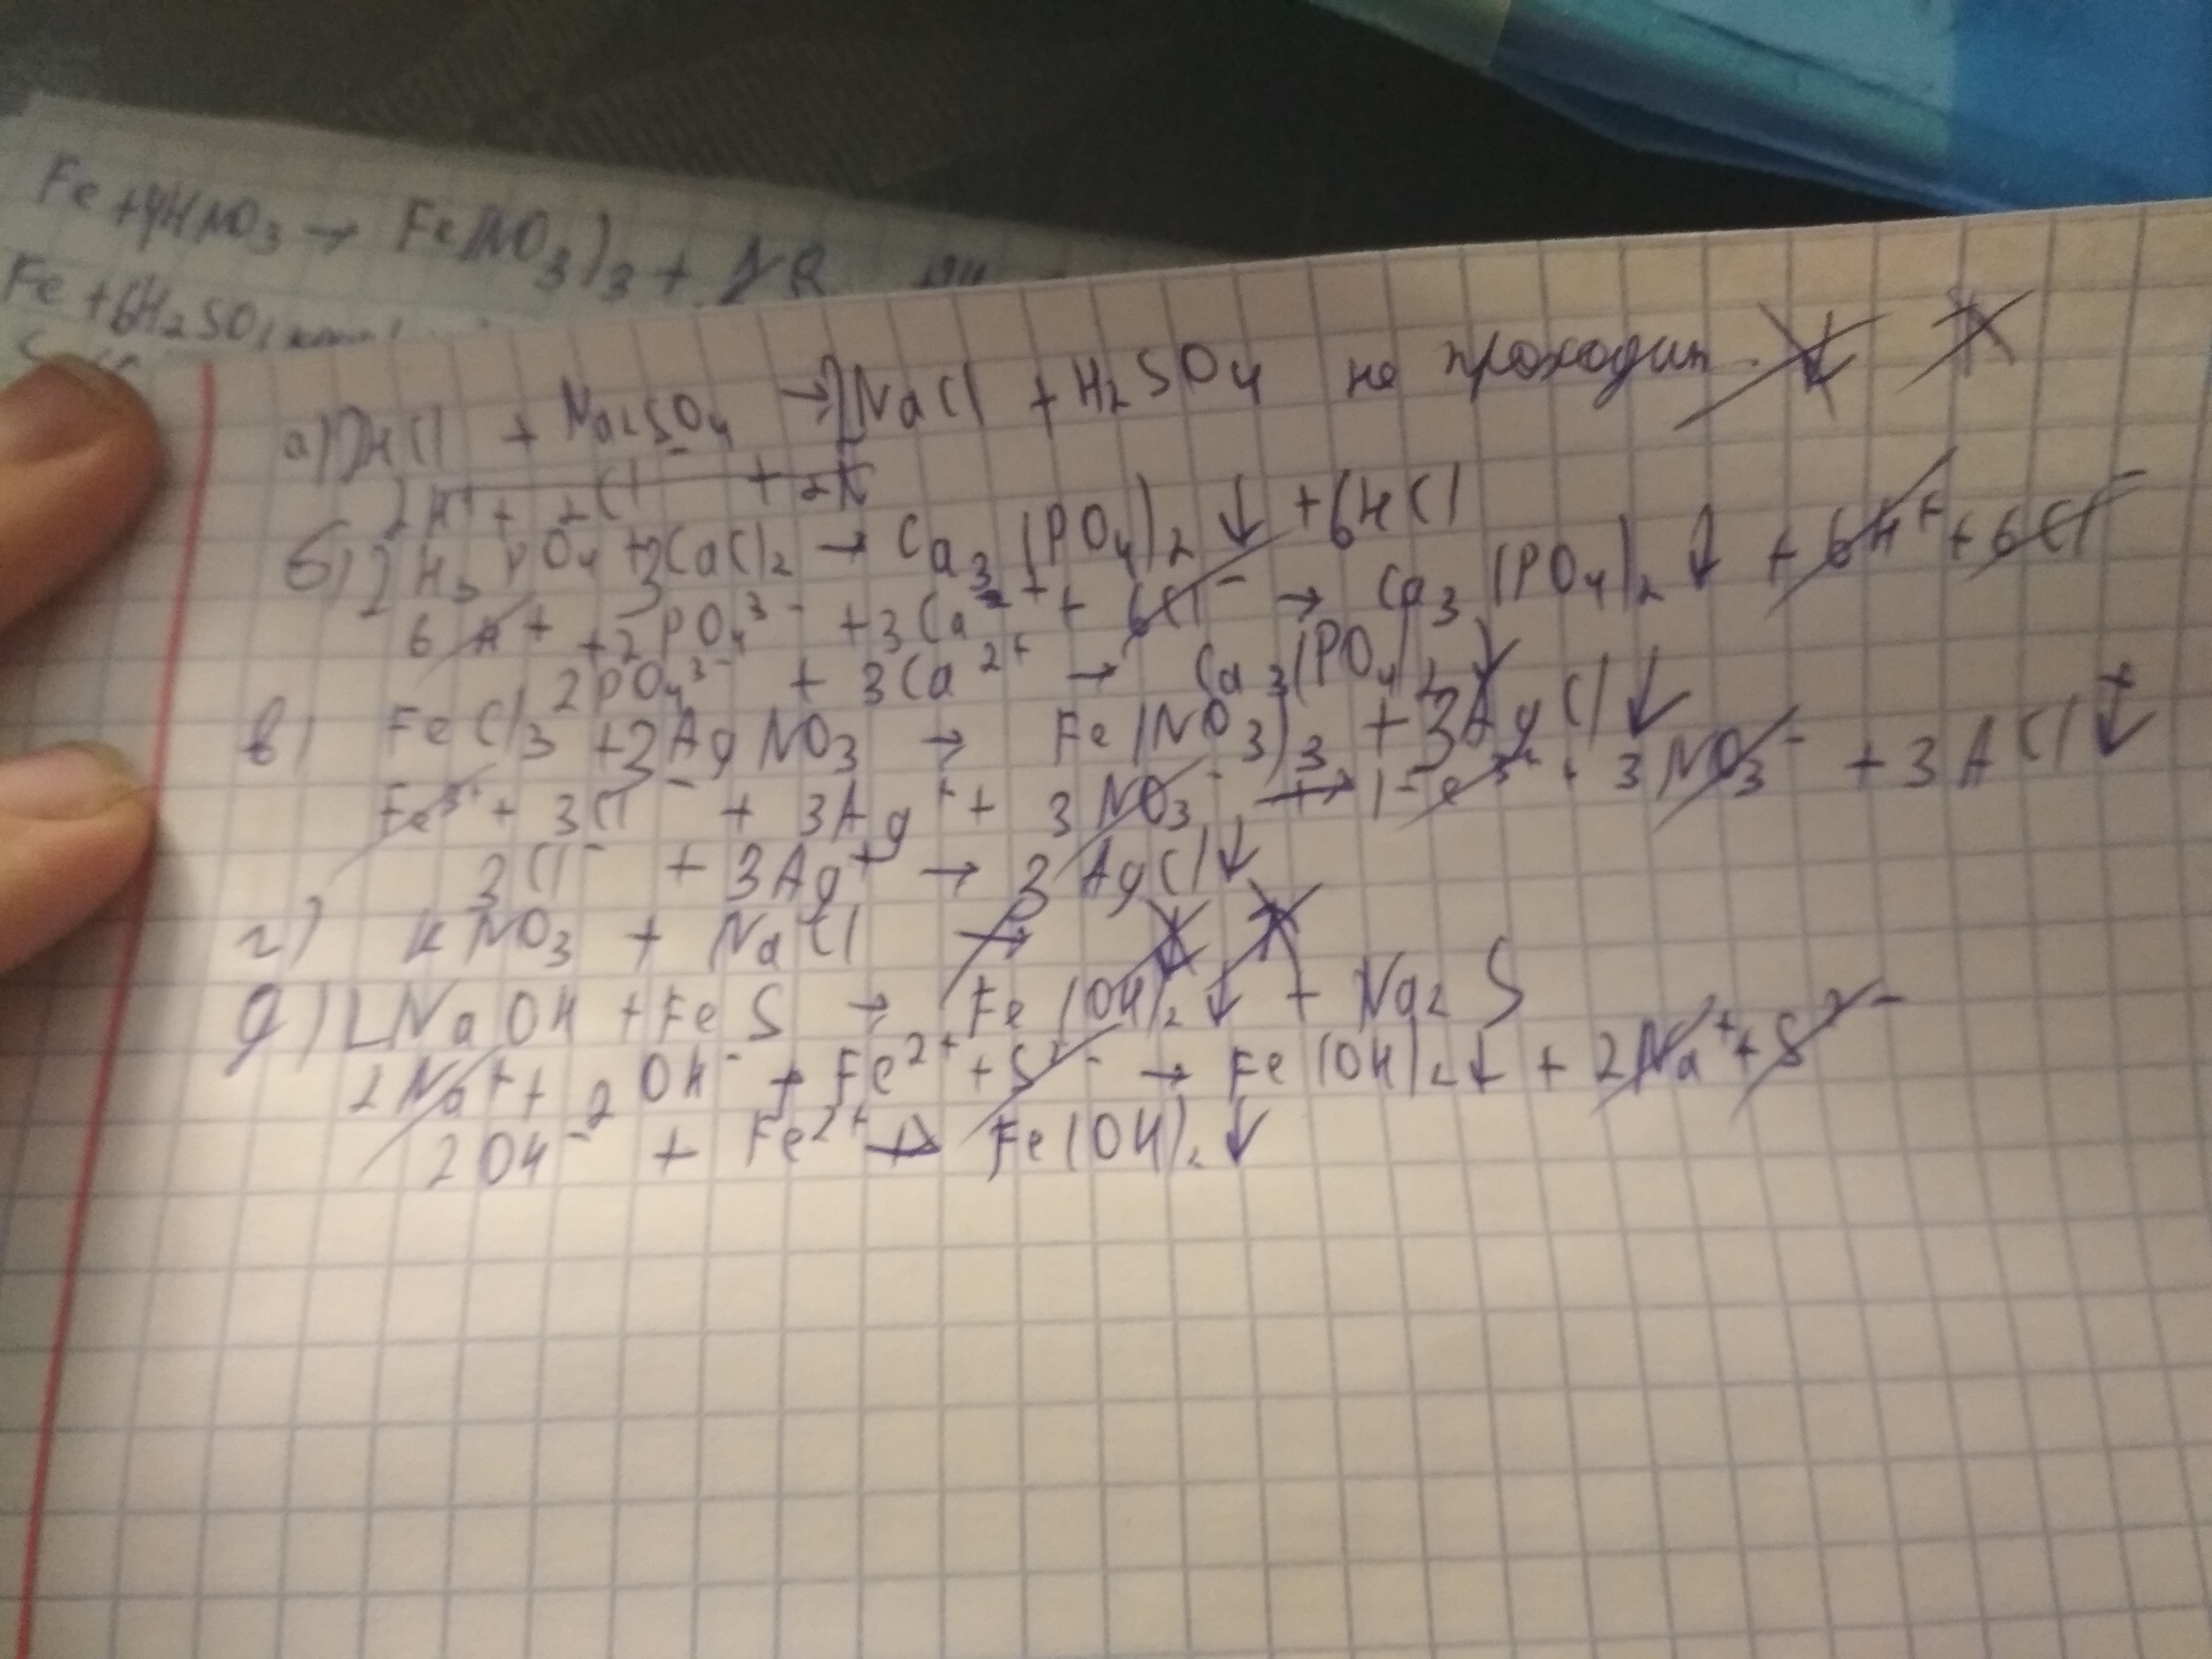 Fe + 4HNO3 → Fe(NO3)3 +
Fe + 6H2SO4
а) 2HCl + Na2SO4 → 2NaCl + H2SO4 не проходит
2H+ + 2Cl +
б) 2H3PO4 + 3CaCl2 → Ca3(PO4)2 ↓ + 6HCl
6H+ + 2PO4 3- + 3Ca 2+ + 6Cl- → Ca3(PO4)2 ↓ + 6H+ + 6Cl-
2PO4 3- + 3Ca 2+ → Ca3(PO4)2 ↓
в) FeCl3 + 3AgNO3 → Fe(NO3)3 + 3AgCl ↓
Fe 3+ + 3Cl- + 3Ag+ + 3NO3- → Fe 3+ + 3NO3- + 3ACl ↓
3Cl- + 3Ag+ → 3AgCl ↓
г) KNO3 + NaCl ↛
д) 2NaOH + FeS → Fe(OH)2 ↓ + Na2S
2Na+ + 2OH- + Fe 2+ + S 2- → Fe(OH)2 ↓ + 2Na+ + S 2-
2OH- + Fe 2+ → Fe(OH)2 ↓